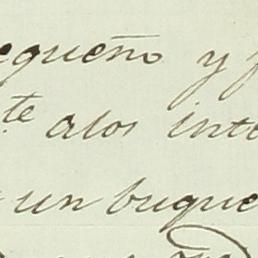 equeño y
te alos inte
un buque